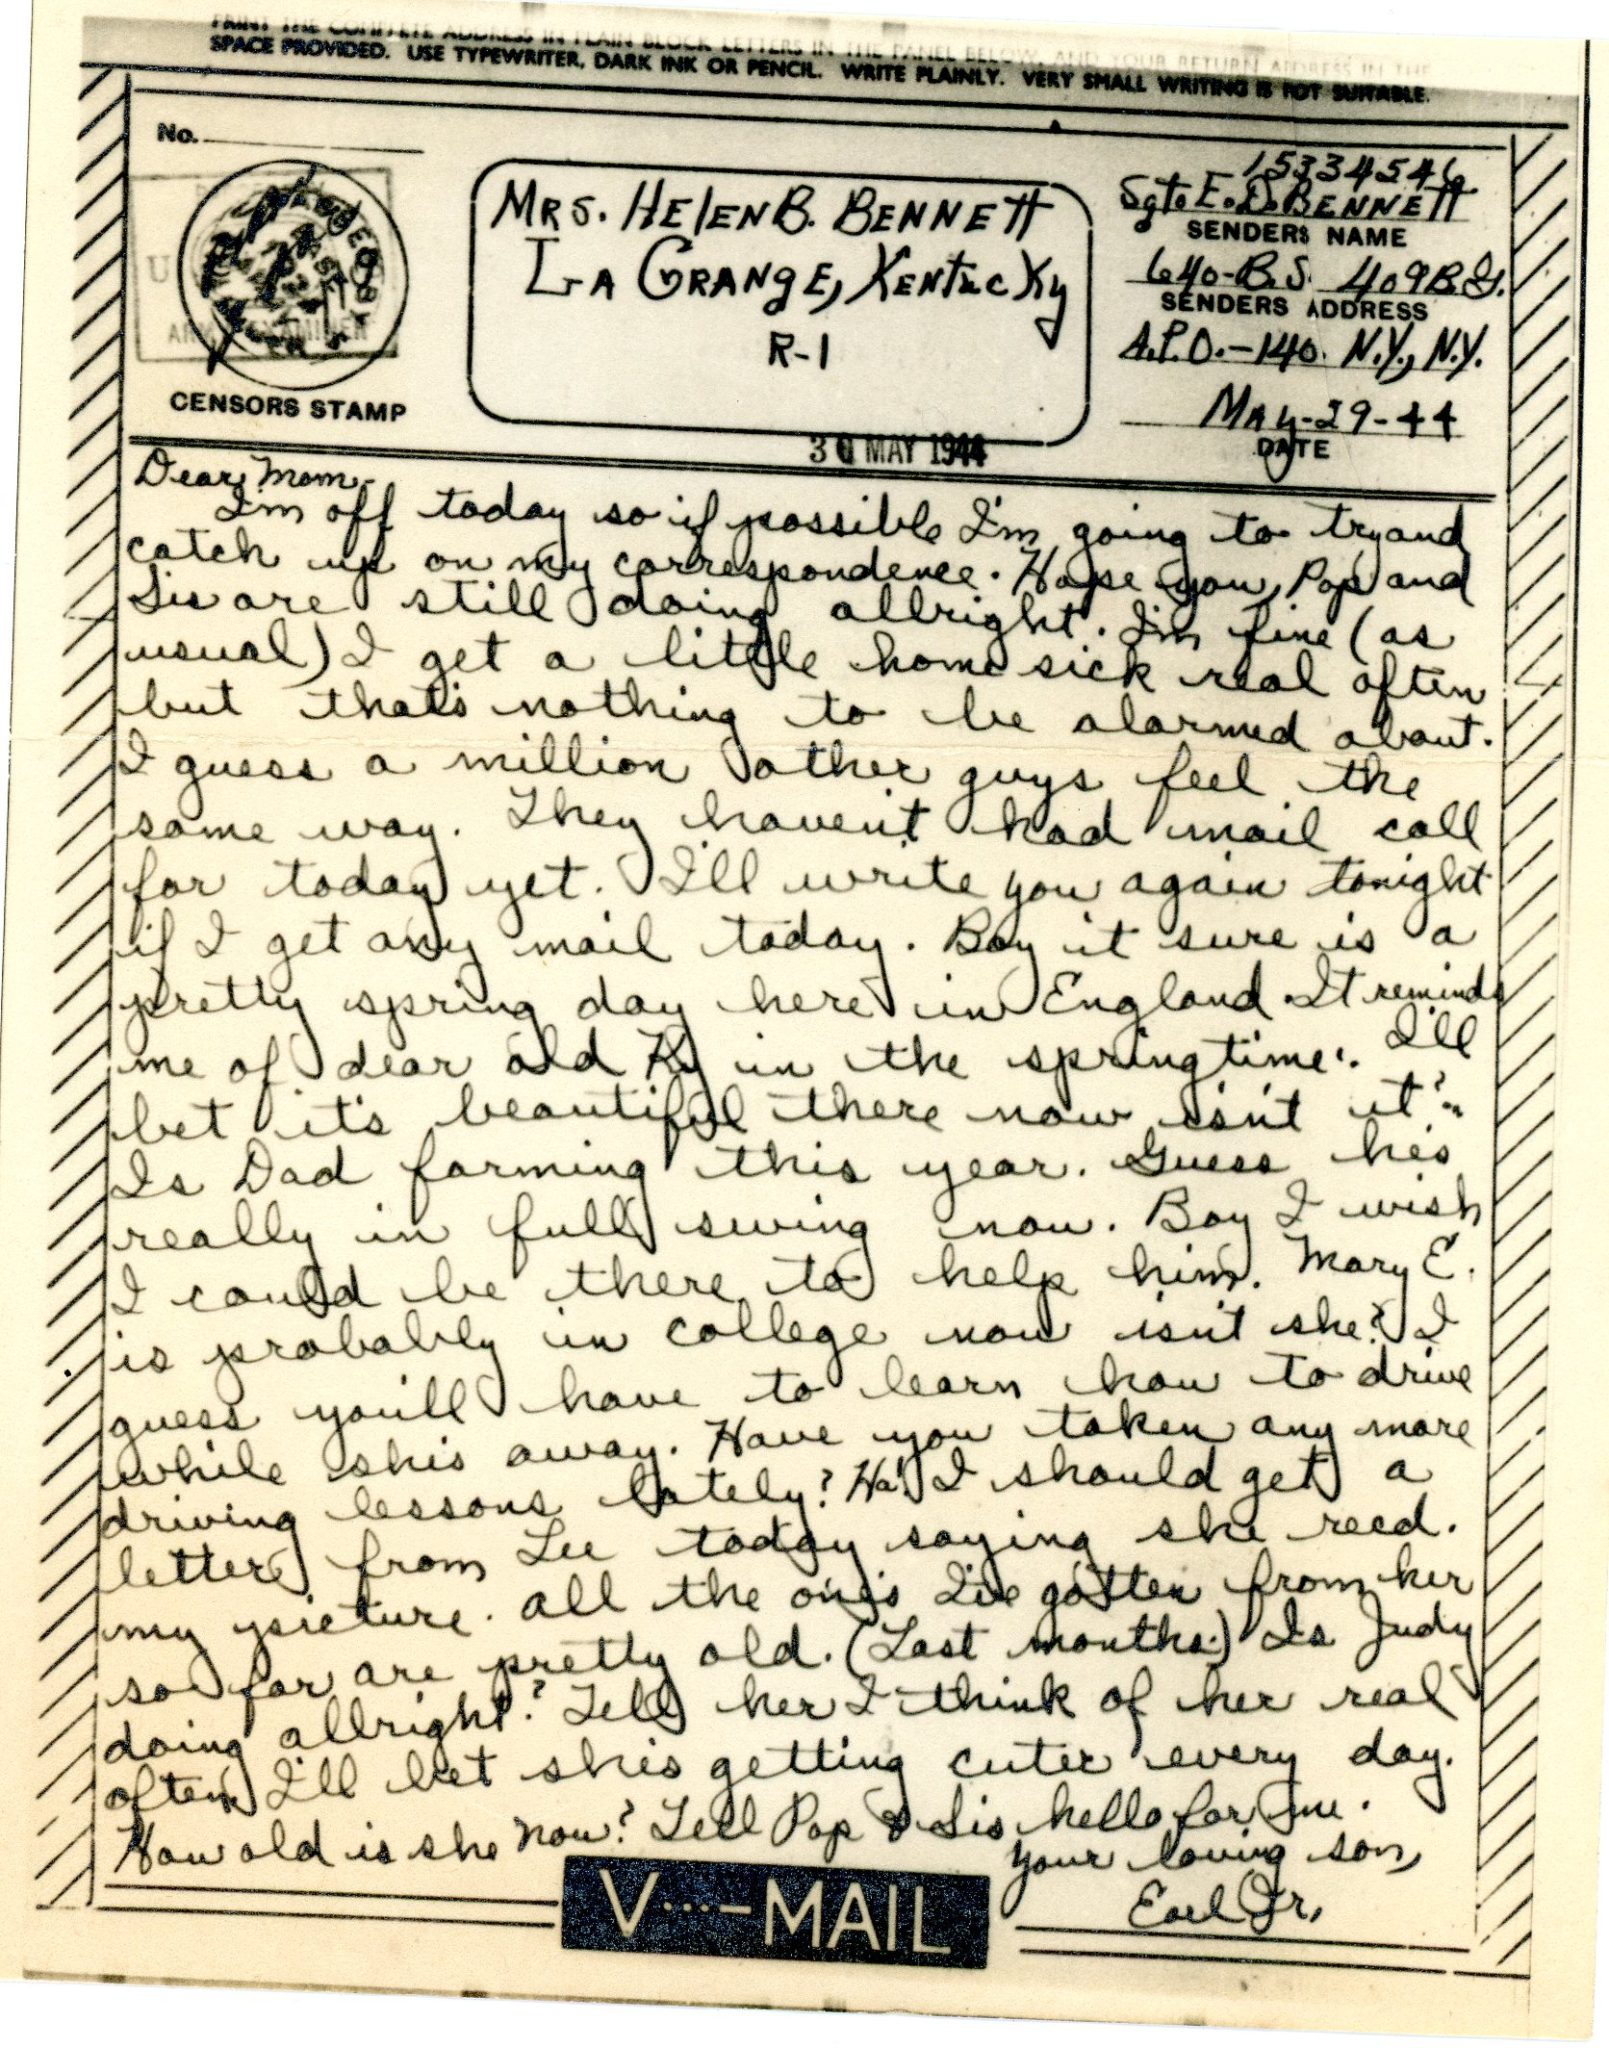 PRINT THE COMPLETE ADDRESS IN PLAIN BLOCK LETTERS IN THE PANEL BELOW, AND YOUR RETURN ADDRESS IN THE
SPACE PROVIDED. USE TYPEWRITER, DARK INK OR PENCIL. WRITE PLAINLY. VERY SMALL WRITING IS NOT SUITABLE.
No.
CENSORS STAMP
MRS. HELEN B. BENNETT
LA GRANGE, KENTUCKY
R-1
15334546
Sgt. E. D. BENNETT
SENDERS NAME
640-B.S. 409 B.G.
SENDERS ADDRESS
A.P.O.-140. N.Y., N.Y.
MAY-29-44
DATE
30 MAY 1944
Dear Mom,
I'm off today so if possible I'm going to try and
catch up on my correspondence. Hope you, Pop and
Sis are still doing allright. I'm fine (as
usual) I get a little home sick real often
but that's nothing to be alarmed about.
I guess a million other guys feel the
same way. They haven't had mail call
for today yet. I'll write you again tonight
if I get any mail today. Boy it sure is a
pretty spring day here in England. It reminds
me of dear old Ky in the springtime. I'll
bet it's beautiful there now isn't it?
Is Dad farming this year. Guess he's
really in full swing now. Boy I wish
I could be there to help him. Mary E.
is probably in college now isn't she? I
guess you'll have to learn how to drive
while she's away. Have you taken any more
driving lessons lately? Ha! I should get a
letter from Lee today saying she recd.
my picture. All the one's I've gotten from her
so far are pretty old. (Last months.) Is Judy
doing allright? Tell her I think of her real
often. I'll bet she's getting cuter every day.
How old is she now? Tell Pop & Sis hello for me.
Your loving son,
Earl Jr.
V...-MAIL